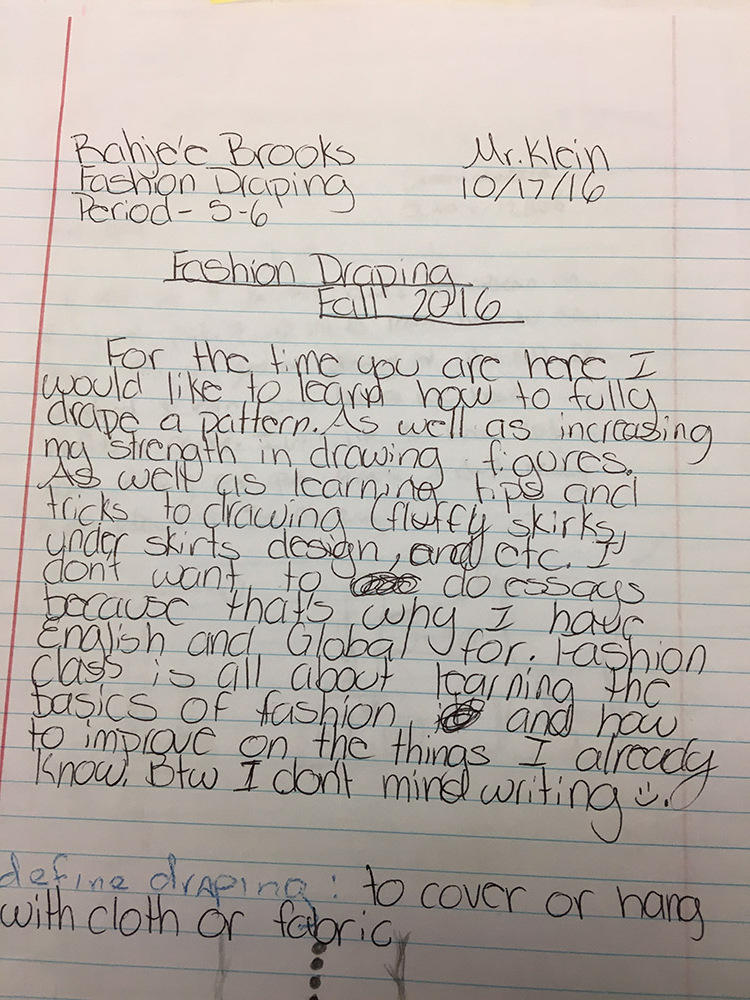 Bahje'e Brooks Mr. Klein
Fashion Draping 10/17/16
Period - 5-6
Fashion Draping
Fall 2016
For the time you are here I
would like to learn how to fully
drape a pattern. As well as increasing
my strength in drawing figures.
As well as learning tips and
tricks to drawing (fluffy skirks,
under skirts design, and etc. I
dont want to do essays
because thats why I have
English and Global for. Fashion
class is all about learning the
basics of fashion, and how
to improve on the things I already
know. Btw I don't mind writing :).
define draping: to cover or hang
with cloth or fabric